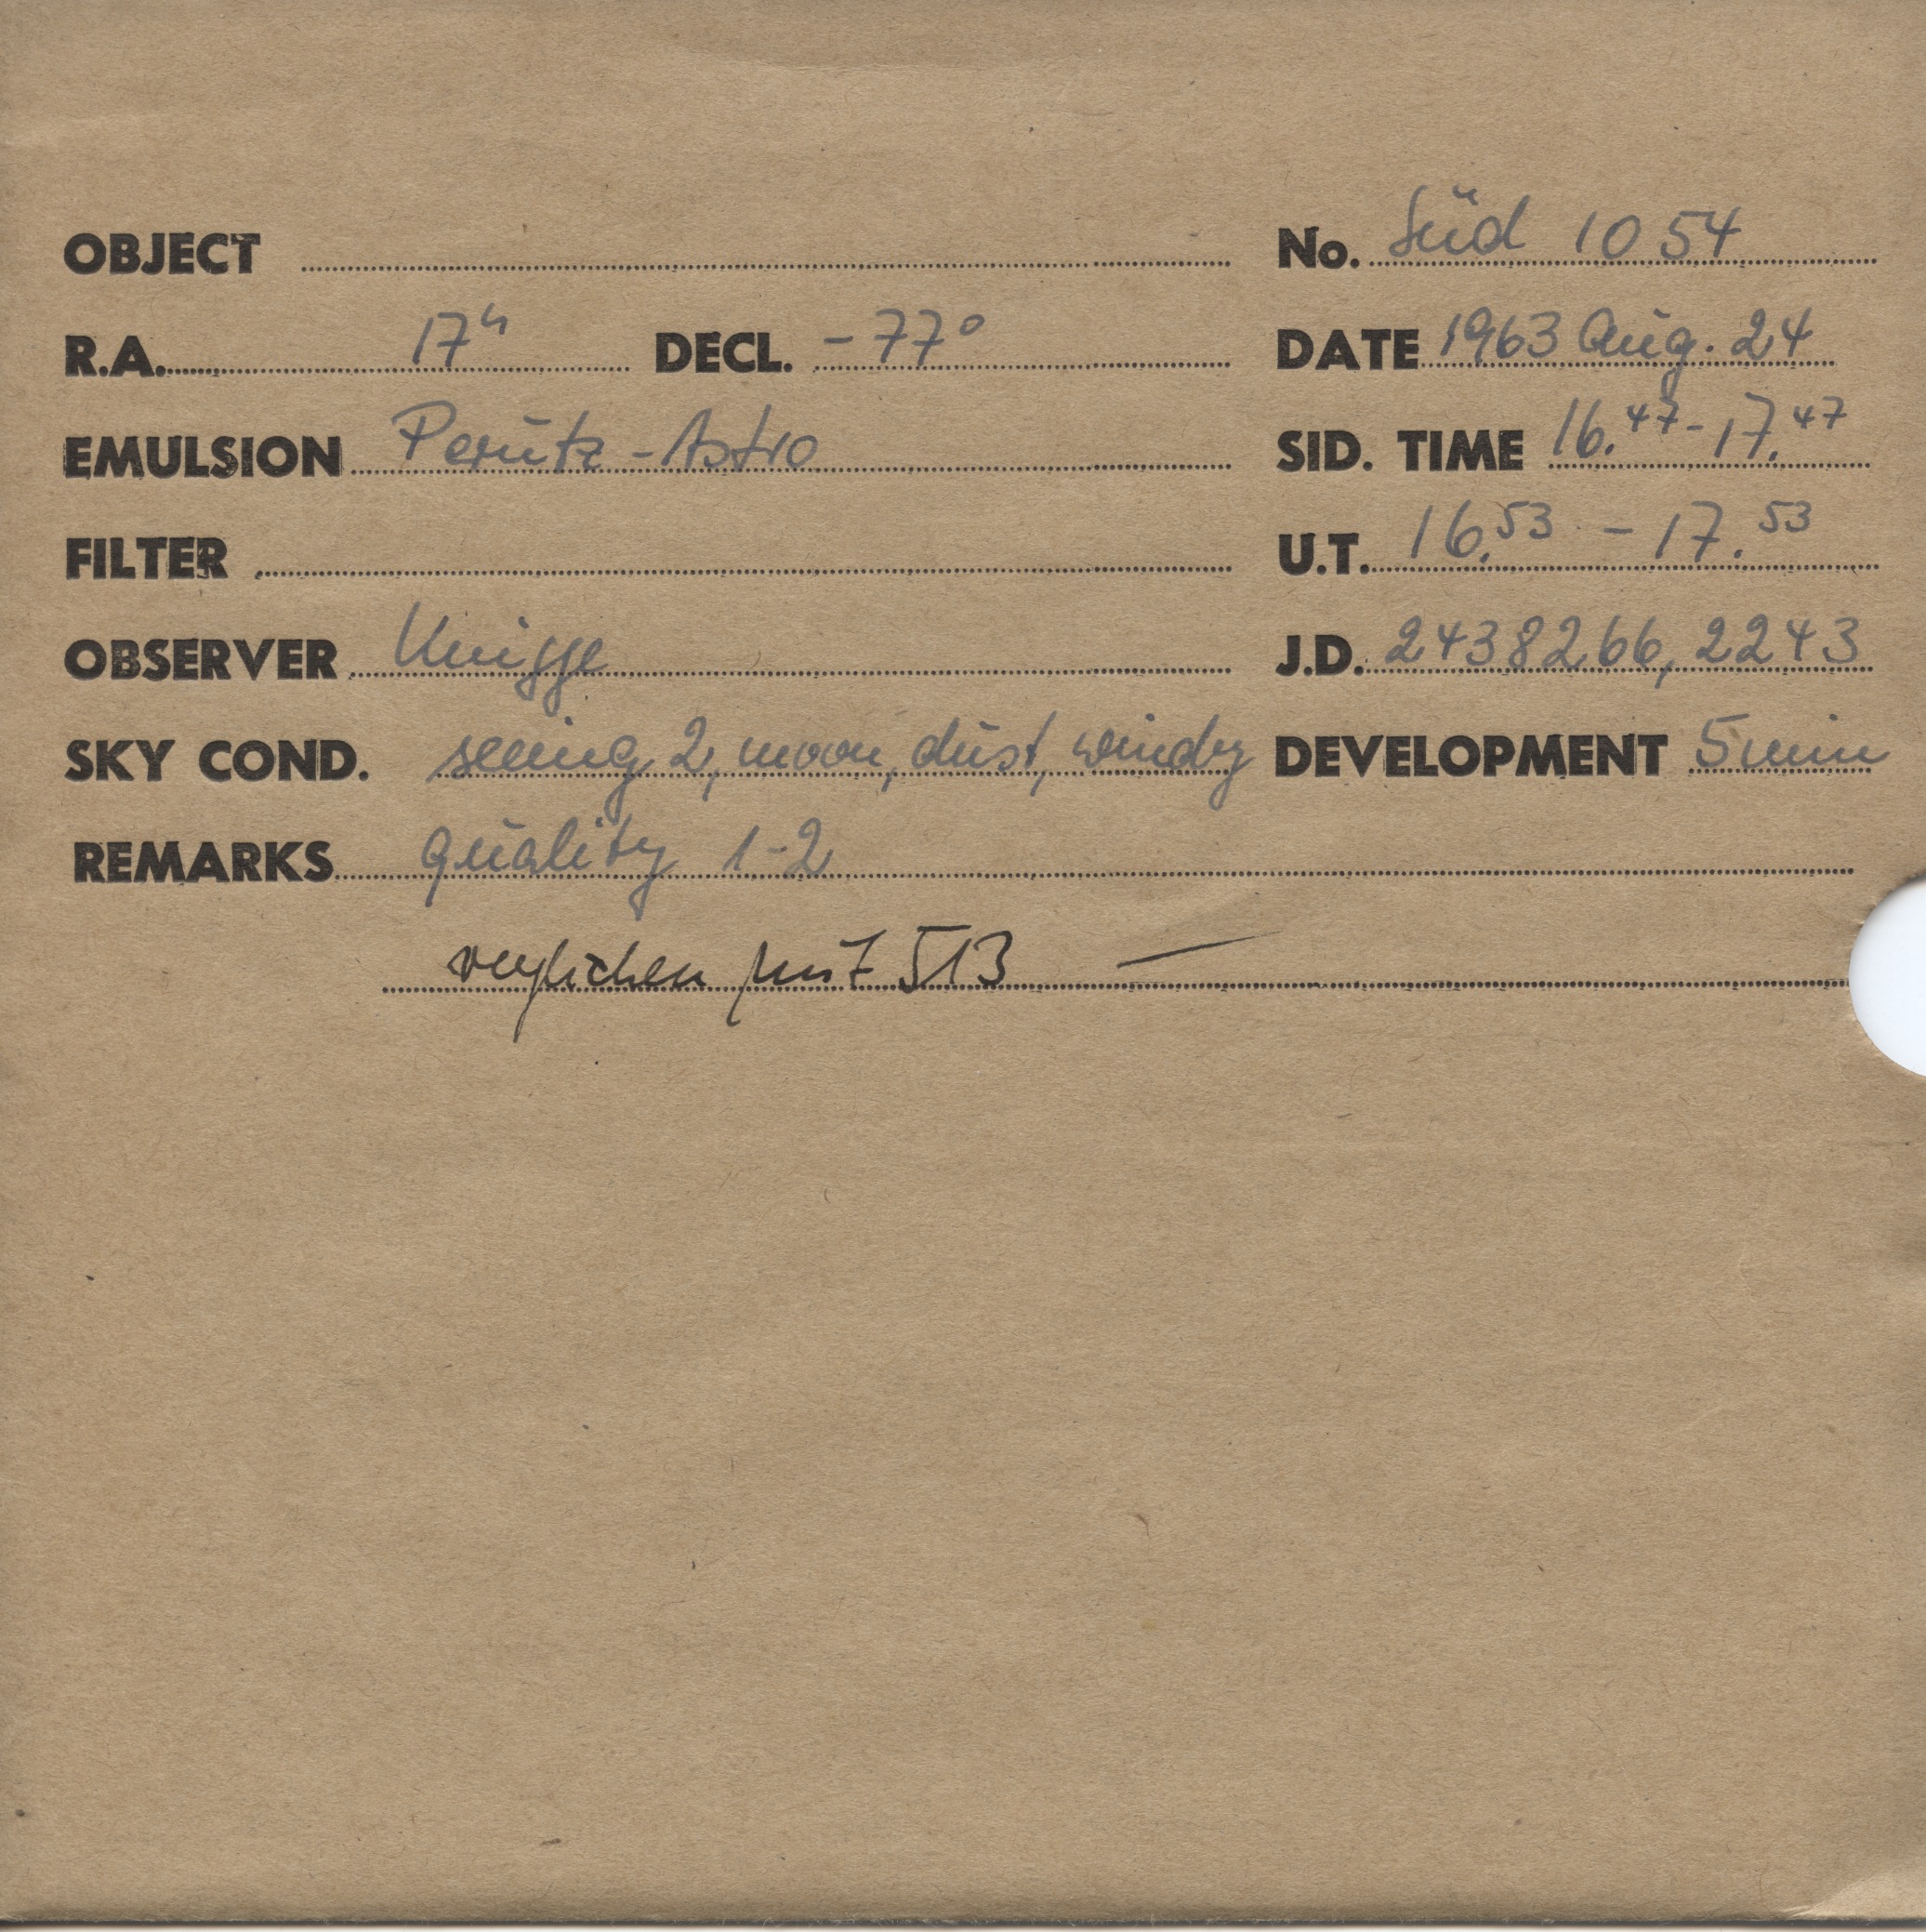 OBJECT No. Süd 1054
R.A. 17h DECL. -77° DATE 1963 Aug. 24
EMULSION Perutz-Astro SID. TIME 16.47-17.47
FILTER U.T. 16.53 - 17.53
OBSERVER Knigge J.D. 2438266,2243
SKY COND. seeing 2, moon, dust, windy DEVELOPMENT 5 min
REMARKS quality 1-2
verglichen mit 513 —